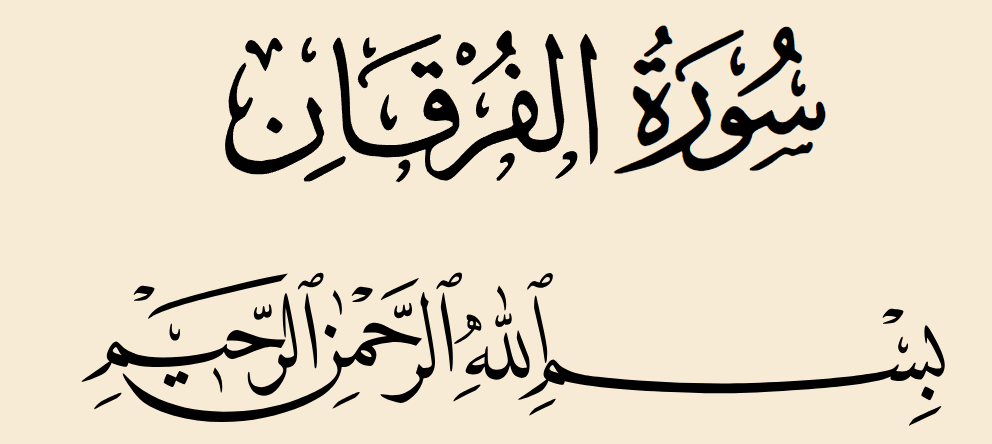 سُورَةُ الفُرْقَانِ
بِسْمِ ٱللَّهِ ٱلرَّحْمَٰنِ ٱلرَّحِيمِ